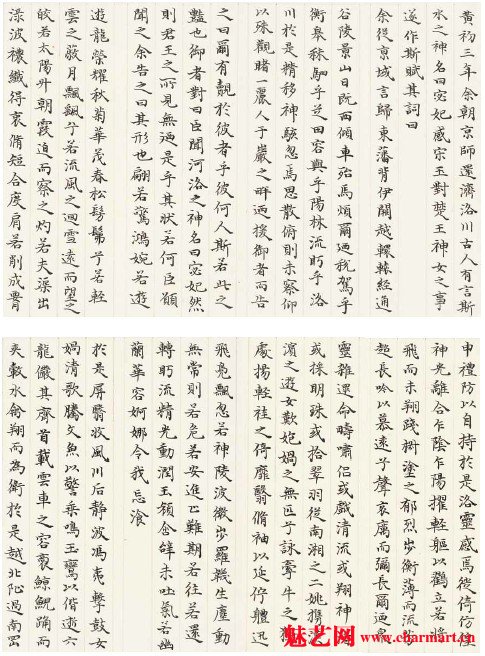 黃初三年余朝京師還濟洛川古人有言斯
水之神名曰宓妃感宗玉對楚王神女之事
遂作斯賦其詞曰
余從京域言歸東藩背伊闕越轘轅經通
谷陵景山日既西傾車殆馬煩爾迺稅駕乎
蘅皋秣駟乎芝田容與乎陽林流眄乎洛
川於是精移神駭忽焉思散俯則未察仰
以殊觀睹一麗人于巖之畔迺援御者而告
之曰爾有覿於彼者乎彼何人斯若此之
豔也御者對曰臣聞河洛之神名曰宓妃然
則君王之所見無迺是乎其狀若何臣願
聞之余告之曰其形也翩若驚鴻婉若遊
遊龍榮耀秋菊華茂春松髣髴兮若輕
雲之蔽月飄颻兮若流風之迴雪遠而望之
皎若太陽升朝霞迫而察之灼若夫渠出
淥波襛纖得衷脩短合度肩若削成
申禮防以自持於是洛靈感焉徙倚彷徨
神光離合乍陰乍陽擢輕軀以鶴立若將
飛而未翔踐椒塗之郁烈步蘅薄而流芳
超長吟以慕遠兮聲哀厲而彌長爾迺衆
靈雜遝命疇嘯侶或戲清流或翔神渚
或採明珠或拾翠羽從南湘之二姚攜漢
濱之遊女歎炮媧之無匹兮詠牽牛之獨
處揚輕袿之倚靡翳脩袖以延佇體迅
飛鳧飄忽若神陵波微步羅襪生塵動
無常則若危若安進止難期若往若還
轉眄流精光動潤玉顏含辭未吐氣若幽
蘭華容婀娜令我忘飡
於是屏翳收風川后靜波馮夷擊鼓女
媧清歌騰文魚以警乘鳴玉鸞以偕逝六
龍儼其齊首載雲車之容裔鯨鯢踊而
夾轂水禽翔而為衛於是越北沚過南岡
魅艺网 www.charmart.cn